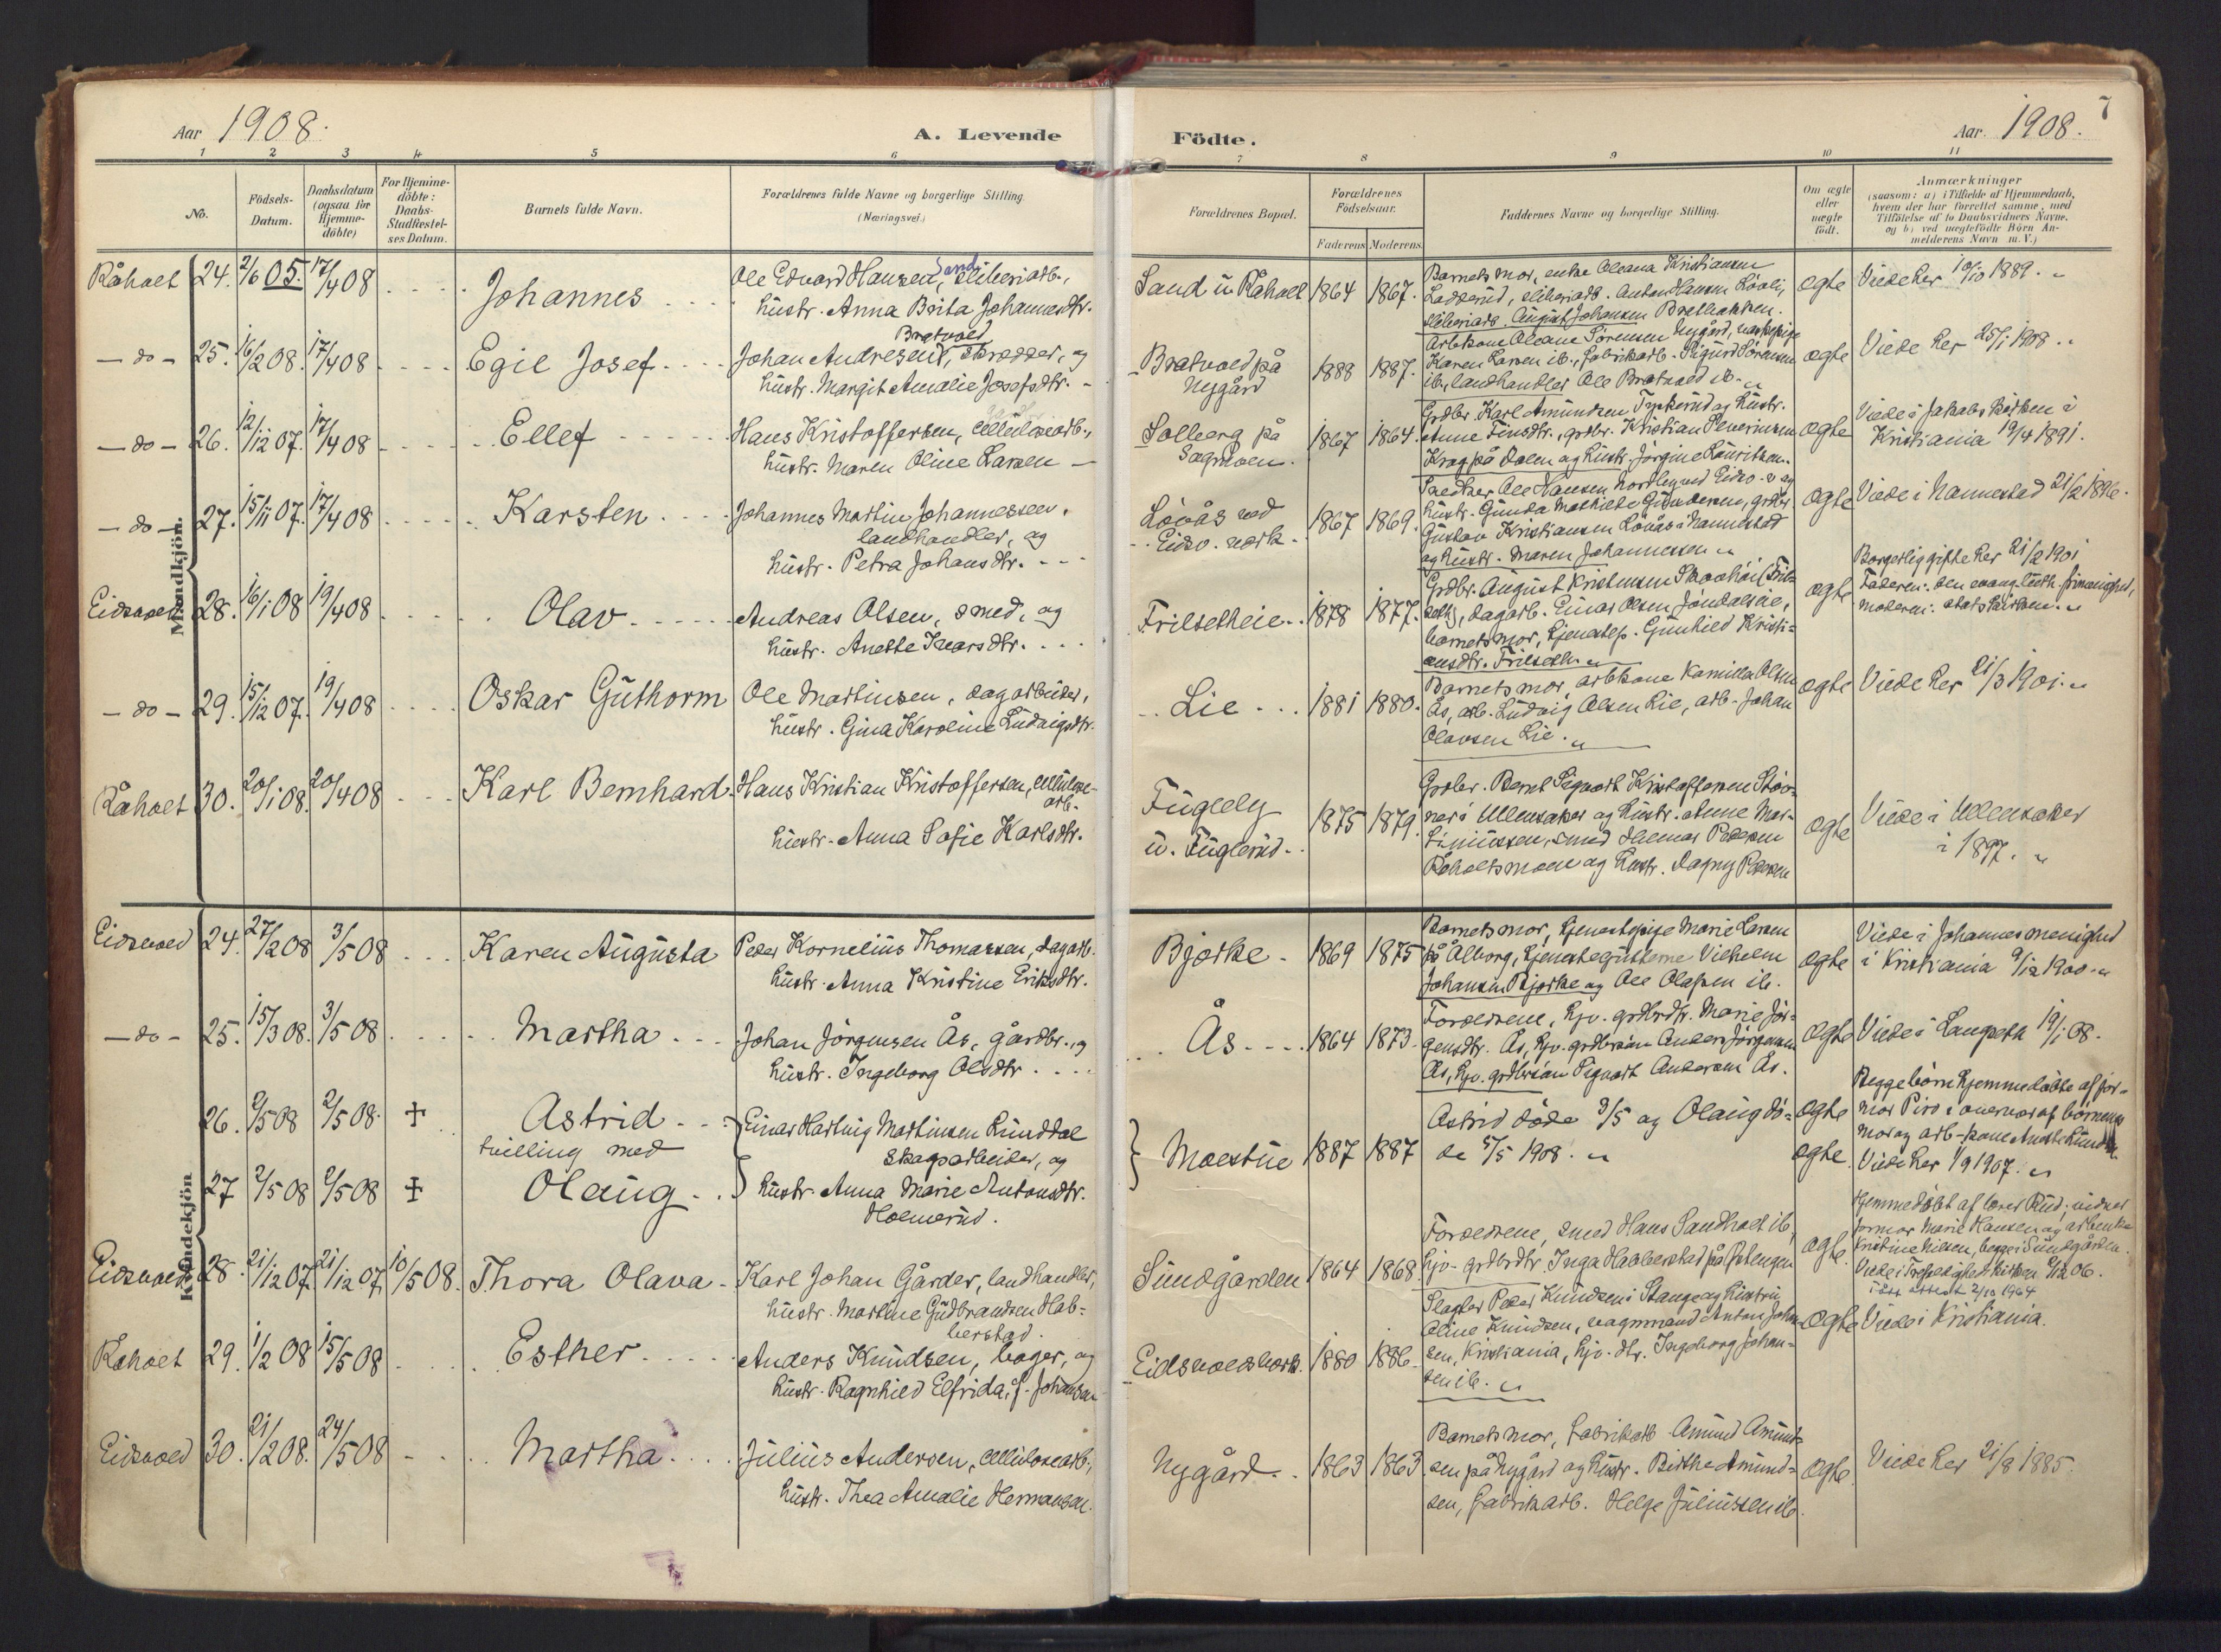 Aar 1908.
A. Levende
Födte.
Aar. 1908.
7
1 2 3 4 5 6 7 8 9 10 11
No.
Födsels-
Datum.
Daabsdatum
(ogsaa for
Hjemme-
döbte)
For Hjemme-
döbte:
Daabs-
Stadfæstel-
ses Datum.
Barnets fulde Navn.
Forældrenes fulde Navne og borgerlige Stilling
(Næringsvei.)
Forældrenes Bopæl.
Forældrenes
Födselsaar.
Faderens Moderens
Faddernes Navne og borgerlige Stilling.
Om ægte
eller
uægte
födt.
Anmærkninger
(saasom: a) i Tilfælde af Hjemmedaab,
hvem der har forrettet samme, med
Tilföielse af to Daabsvidners Navne.
og b) ved uægtefödte Börn An-
melderens Navn m. V.)
Mandkjön.
Råholt 24. 2/6 05. 17/4 08 Johannes
Ole Edvard Hansen, Sand sliberiarb.,
hustr. Anna Brita Johannesdtr.
Sand u Råholt 1864 1867.
Barnets mor, enke Oleana Kristiansen
Ladderud, sliberiarb. Anton Hansen Lövli,
sliberiarb. August Johansen Brætbakken.
ægte Viede her 10/10 1889.
- do - 25. 16/2 08. 17/4 08 Egil Josef
Bratvold
Johan Andresen, skrædder, og
hustr. Margit Amalie Josefsdtr. -
Bratvold på
Nygård
1888 1887.
Arbkone Oleane Sörensen Nygård, ungpige
Karen Larsen ib., fabrikarb. Sigurd Sörensen
ib., landhandler Ole Bratvold ib.
ægte Viede her 25/1 1908.
- do - 26. 12/12 07. 17/4 08 Ellef
Hans Kristoffersen, cellulosearb.,
hustr. Maren Oline Larsen -
Solberg på
Sagmoen.
1867 1864.
Grdbr. Karl Amundsen Tyskerud og hustr.
Anne Finsdtr., grdbr. Kristian Severinsen
Krag på Dalen og hustr. Jörgine Lauritsen.
ægte Viede i Jakobs kirken i
Kristiania 19/4 1891.
- do - 27. 15/11 07. 17/4 08 Karsten
Johannes Martin Johannessen,
landhandler, og
hustr. Petra Johansdtr.
Lövås ved
Eidsv. verk
1867 1869.
Snedker Ole Hansen Nordby ved Eidsv. v og
hustr. Gunda Mathilde Gundersen, grdbr.
Gustav Kristiansen Lövås i Nannestad
og hustr. Maren Johannessen
ægte Viede i Nannestad 21/2 1896.
Eidsvold 28. 16/1 08 19/4 08 Olav
Andreas Olsen, smed, og
hustr. Anette Ivarsdtr.
Frilsetheie 1878 1877.
Grdbr. August Kristensen Skovhöi (Fril-
seth), dagarb. Einar Olsen Jöndalseie,
barnets mor, tjenestep. Gunhild Kristi-
ansdtr. Frilseth
ægte Borgerlig gifte her 21/2 1901
Faderen: den evang. luth. frimenighed,
moderen: statskirken.
- do - 29. 15/12 07. 19/4 08 Oskar Guthorm
Ole Martinsen, dagarbeider,
hustr. Gina Karoline Ludvigsdtr.
Lie 1881 1880.
Barnets mor, arbkone Kamilla Olsen
Ås, arb. Ludvig Olsen Lie, arb. Johan
Olavsen Lie.
ægte Viede her 21/3 1901.
Råholt 30. 20/1 08. 20/4 08 Karl Bernhard
Hans Kristian Kristoffersen, cellulose-
arb.
hustr. Anna Sofie Karlsdtr.
Fuglely
u. Fuglerud
1875 1879.
Grdbr. Bernt Sigvart Kristoffersen Stöv-
ner i Ullensaker og hustr. Anne Mar-
tiniussen, smed Hjelmar Pedersen
Råholtsmoen og hustr. Dagny Pedersen
ægte Viede i Ullensaker
i 1897.
Kvindekjön
Eidsvold 24. 27/2 08 3/5 08 Karen Augusta
Peder Kornelius Thomassen, dagarb.
hustr. Anna Kristine Eriksdtr.
Bjørke 1869 1875
Barnets mor, tjenestepige Marie Larsen
på Ålborg, tjenestegutterne Vilhelm
Johansen Bjørke og Ole Olafsen ib.
ægte Viede i Johannes menighed
i Kristiania 9/12 1900.
- do - 25. 15/3 08. 3/5 08 Martha
Johan Jörgensen Ås, gårdbr., og
hustr. Ingeborg Olsdtr
Ås 1864 1873.
Forældrene, hjv. grdbrdtr. Marie Jör-
gensdtr. Ås, hjv. grdbrsön Anders Jörgensen
Ås, hjv. grdbrsön Sigvart Andersen Ås.
ægte Viede i Langseth 19/1 08.
26. 2/5 08 2/5 08. + Astrid
tvilling med
27 2/5 08 2/5 08 + Olaug
Einar Hartvig Martinsen Lunddal
skogsarbeider, og
hustr. Anna Marie Antonsdtr.
Holmerud.
Moestue 1887 1887
Astrid döde 3/5 og Olaug dö-
de 5/5 1908.
ægte
ægte.
Begge börn hjemmedöbte af jor-
mor Piro i overvær af börnenes
mor og arb-kone Anette Lund
Viede her 1/9 1907.
Eidsvold 28. 21/12 07. 21/12 07. 10/5 08. Thora Olava
Karl Johan Gårder, landhandler,
hustr. Martine Gudbrandsen Hab-
berstad.
Sundgården 1864 1868
Forældrene, smed Hans Sandholt ib.
hjv. grdbrdtr. Inga Habberstad på Östengen
ægte.
Hjemmedöbt af lærer Rud; vidner
jormor Marie Hansen og arbenke
Kristine Nilsen, begge i Sundgården.
Viede i Trefoldighedskirken 9/12 06.
Råholt 29. 1/2 08 15/5 08 Esther
Anders Knudsen, bager, og
hustr. Ragnhild Elfrida, f. Johansen
Eidsvoldsverk. 1880 1886.
Slagter Peder Knudsen i Stange og hustru
Oline Knudsen, vognmand Anton Johan-
sen, Kristiania, hjv. dtr. Ingeborg Johan-
sen ib.
ægte Viede i Kristiania.
Eidsvold 30. 21/2 08. 24/5 08 Martha
Julius Andersen, cellulosearb.,
hustr. Thea Amalie Hermansen.
Nygård 1863 1863
Barnets mor, fabrikarb. Amund Amund-
sen på Nygård og hustr. Birthe Amund-
sen, fabrikarb. Helge Juliussen ib.
ægte. Viede her 21/8 1885.